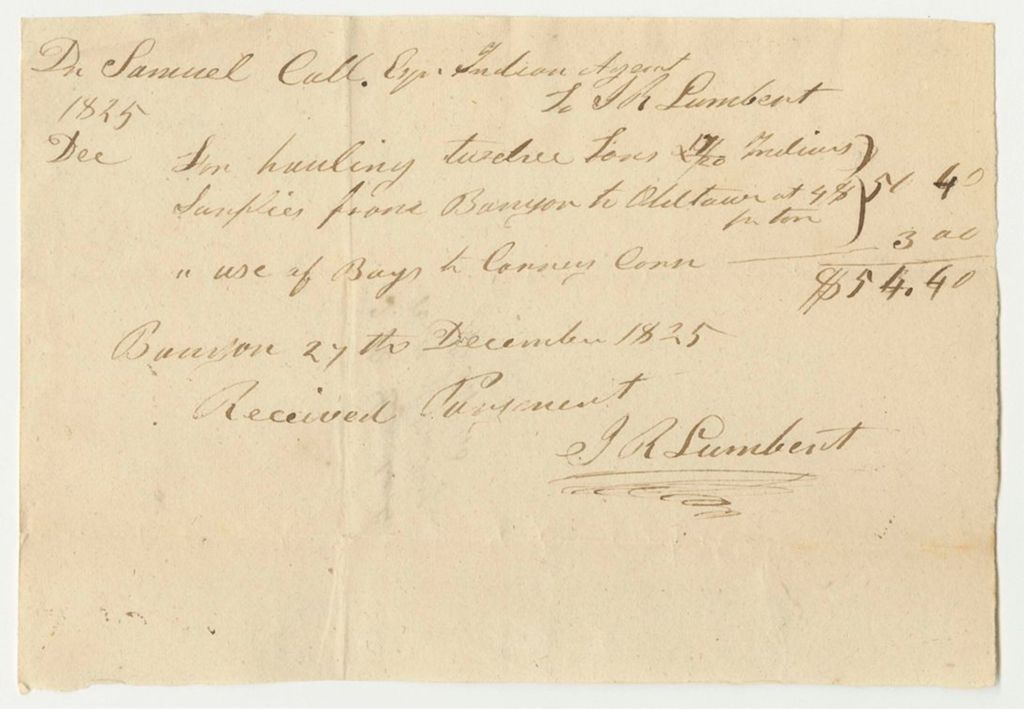 Dr Samuel Call. Esqr. Indian Agent
To J R Lumbert
1825
Dec For hauling twelve Tons 17/20 Indians
Supplies from Bangor to Oldtown at 4$ 51 40
pr ton
3 00
" use of Bags to Convey Corn
$54.40
Bangor 27th December 1825
Received Payment
J R Lumbert